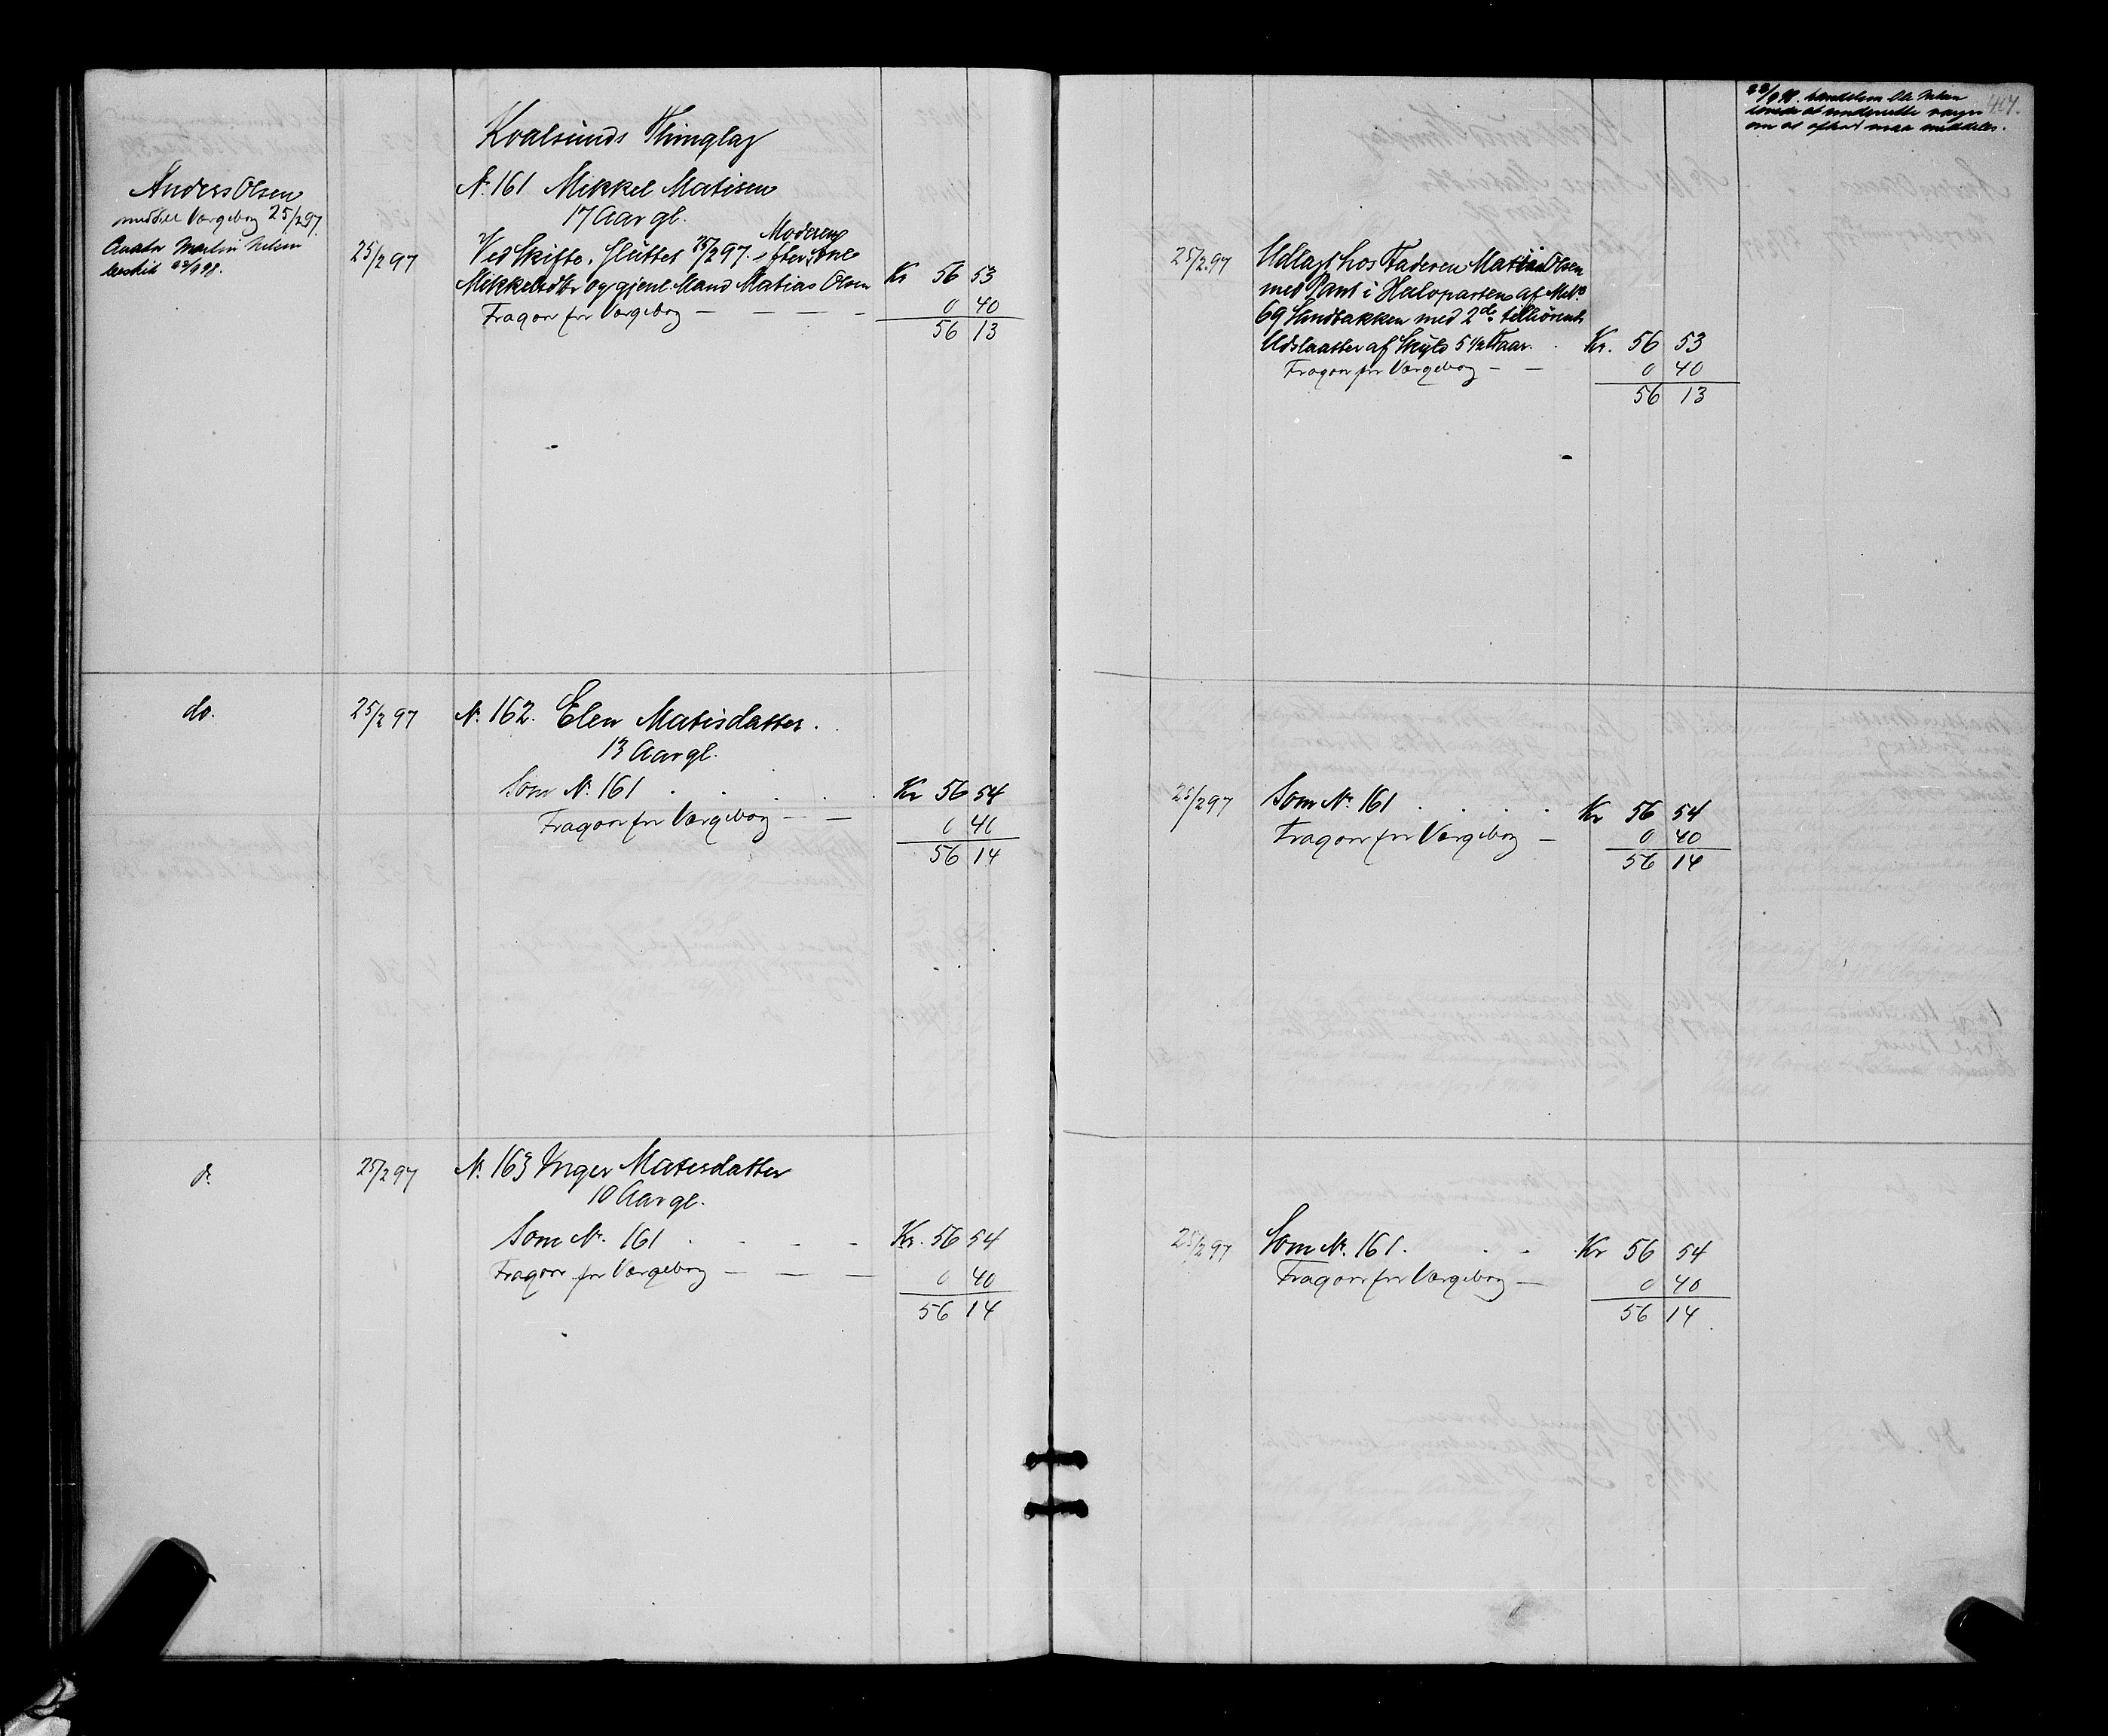 Kvalsunds Thinglag
Anders Olsen
meddelt Værgebog 25/2 97
Curator Martin Nilsen
25/2 97
N. 161 Mikkel Matisen
17 Aar gl.
Ved Skifte, sluttet 25/2 97. efter Moderen
Mikkelsdtr og gjenl. Mand Matias Olsen Kr 56 53
Fragaar for Værgebog — — — — 0 40
56 13
do.
25/2 97
N. 162. Elen Matisdatter.
13 Aar gl.
Som N. 161 . . . . . Kr 56 54
Fragaar for Værgebog — — 0 40
56 14
do
25/2 97
N. 163 Inger Matisdatter
10 Aar gl.
Som N. 161 . . . . Kr. 56 54
Fragaar for Værgebog — — — 0 40
56 14
407.
om at maa meddeles.
25/2 97
Udlagt hos Faderen Matias Olsen
med Pant i Halvparten af Mat.
69 Sandbakken med 2de tilhørende
Udslaatter af Skyld 5 1/2 Kr. 56 53
Fragaar for Værgebog — — 0 40
56 13
25/2 97
Som N. 161 . . . . Kr 56 54
Fragaar for Værgebog — 0 40
56 14
25/2 97
Som N. 161. . . Kr 56 54
Fragaar for Værgebog — 0 40
56 14